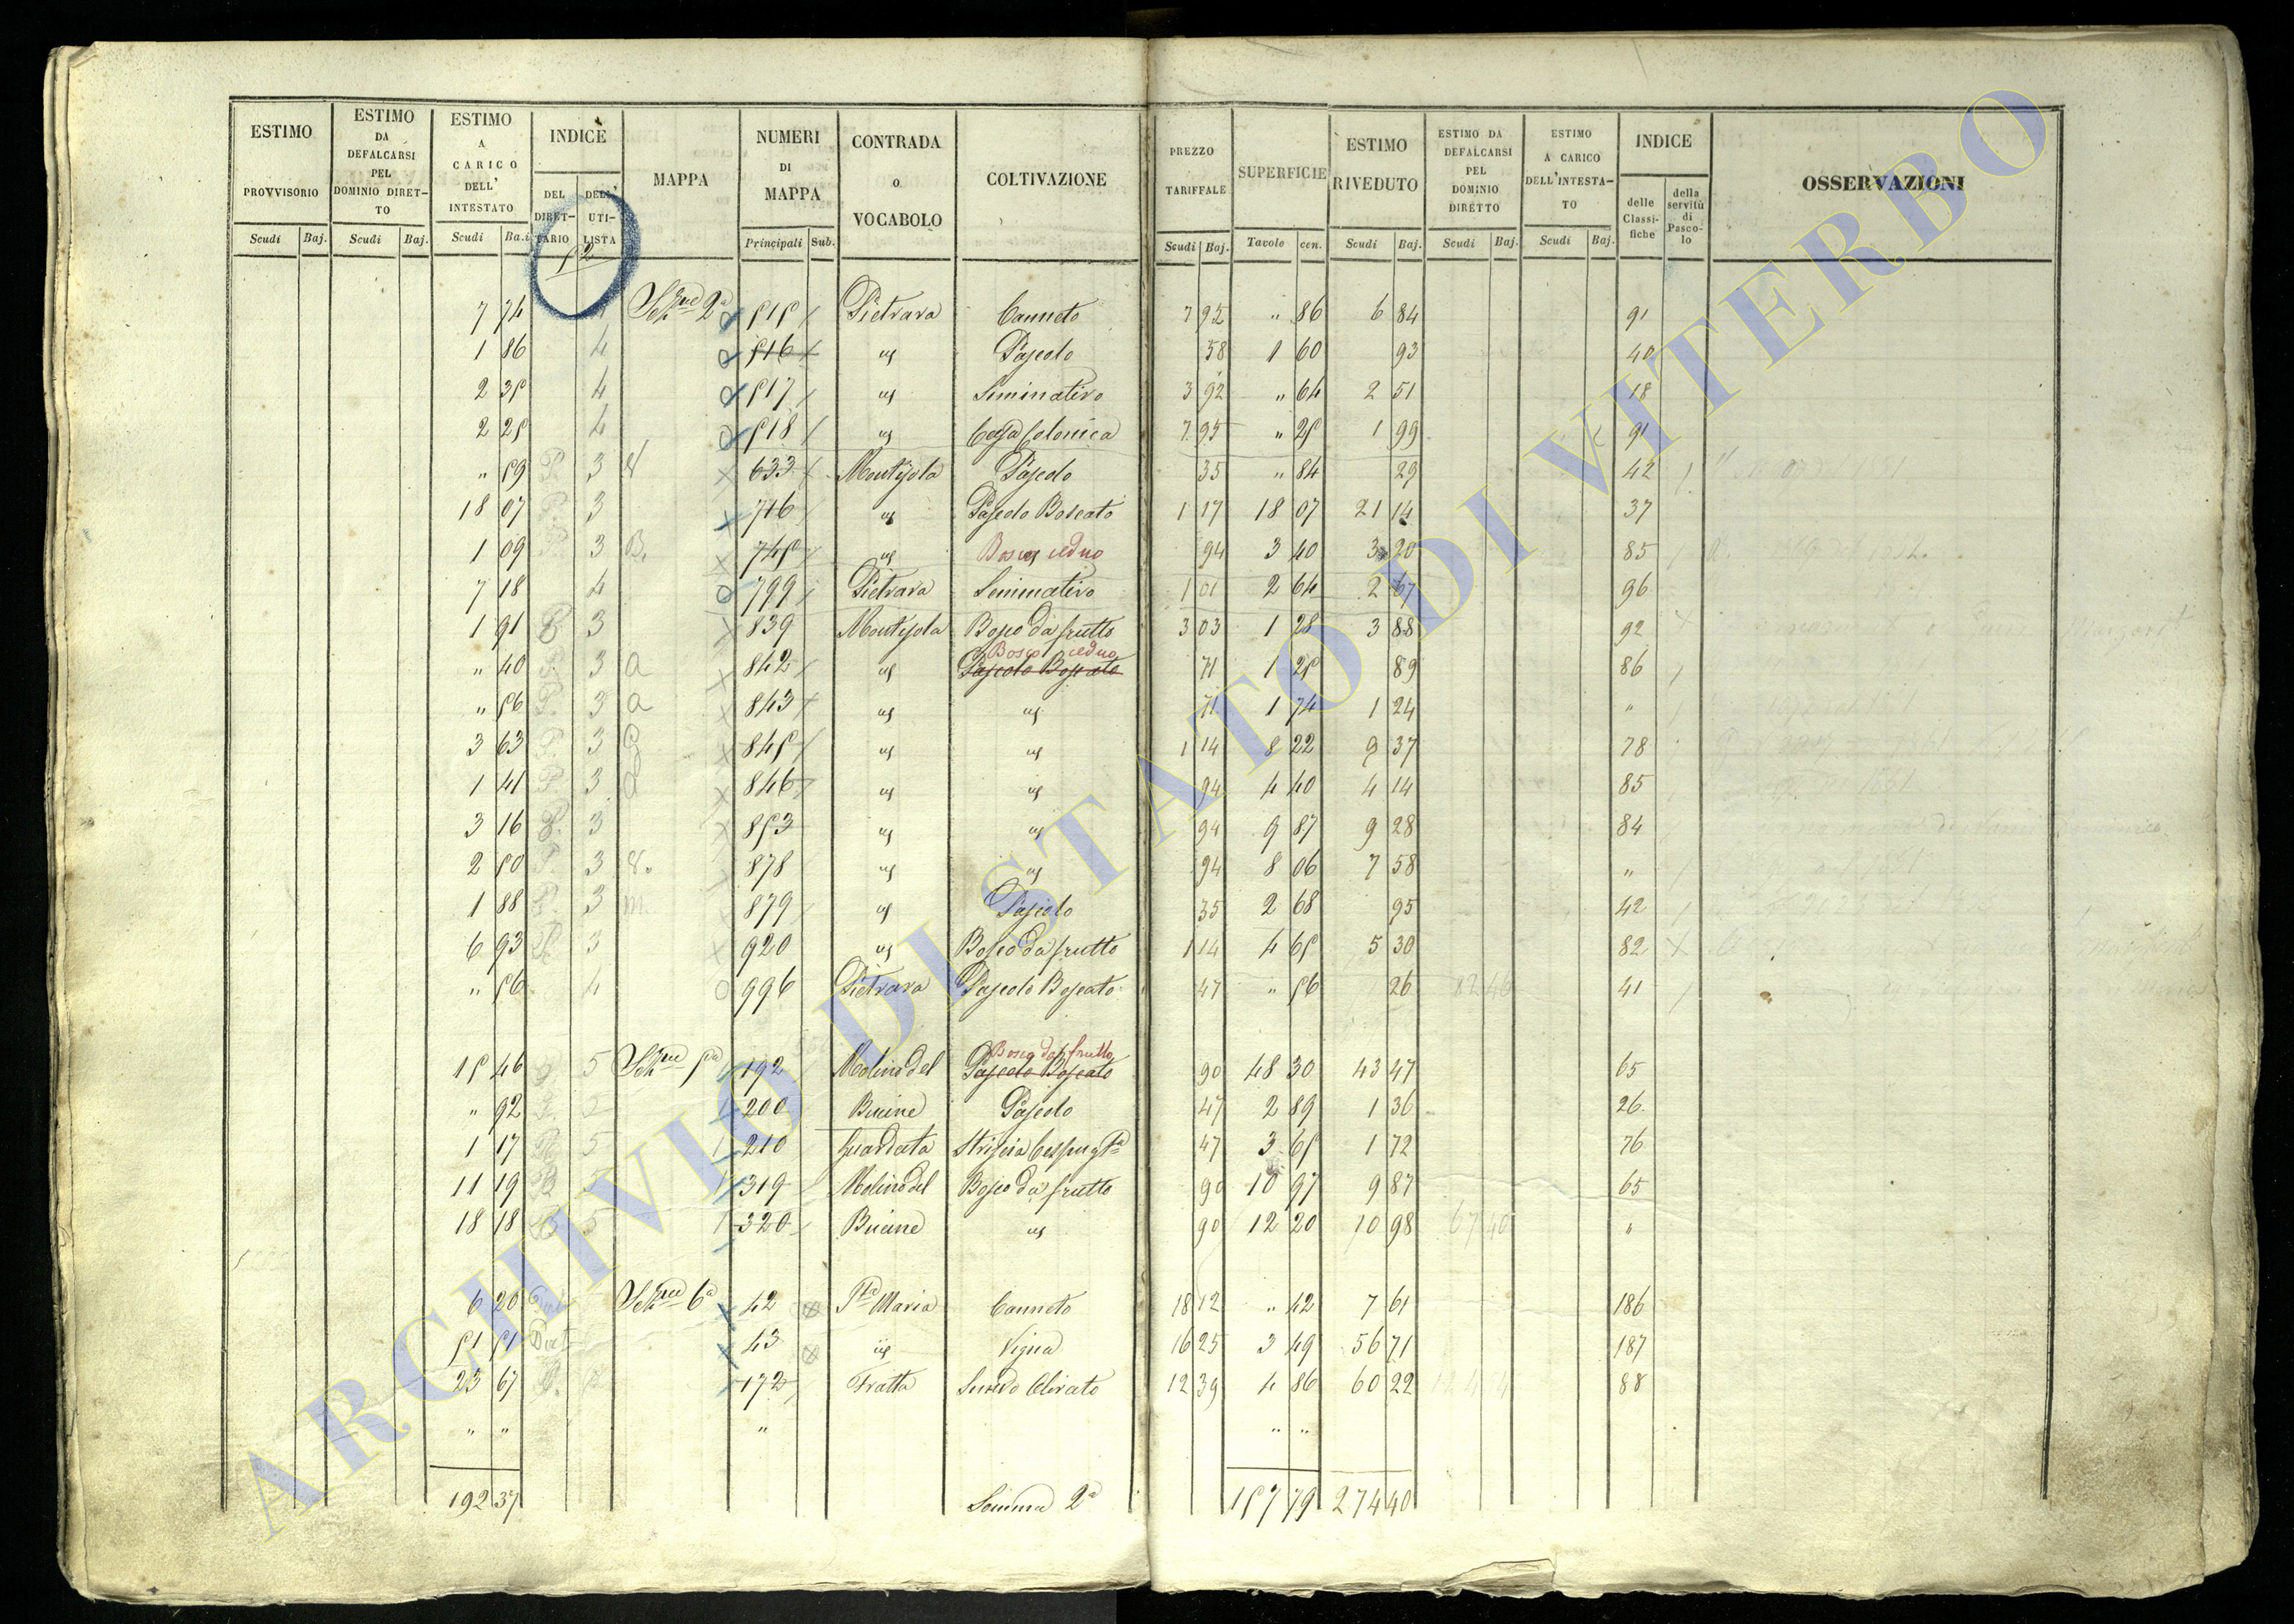 ESTIMO PROVVISORIO
ESTIMO DA DEFALCARSI PEL DOMINIO DIRET-TO
ESTIMO A CARICO DELL' INTESTATO
INDICE
DEL DIRET-TARIO
DELL' UTI-LISTA
MAPPA
NUMERI DI MAPPA
CONTRADA O VOCABOLO
COLTIVAZIONE
PREZZO TARIFFALE
SUPERFICIE
ESTIMO RIVEDUTO
ESTIMO DA DEFALCARSI PEL DOMINIO DIRETTO
ESTIMO A CARICO DELL'INTESTA-TO
INDICE
delle Classi-fiche
della servitù di Pasco-lo
OSSERVAZIONI
Scudi Baj. Scudi Baj. Scudi Ba.i Principali Sub. Scudi Baj. Tavole cen. Scudi Baj. Scudi Baj. Scudi Baj.
52
7 74 2a 515 Pietrara Canneto 7 95 " 86 6 84 91
1 86 4 516 id Pascolo 58 1 60 93 40
2 35 4 517 id Seminativo 3 92 " 64 2 51 18
2 25 4 518 id Casa Colonica 7 95 " 25 1 99 91
" 59 P. 3 633 Montisola Pascolo 35 " 84 29 42
18 07 P. 3 716 id Pascolo Boscato 1 17 18 07 21 14 37
1 09 P. 3 B. 745 id Bosco ceduo 94 3 40 3 20 85
7 18 4 799 Pietrara Seminativo 1 01 2 64 2 67 96
1 91 3 839 Montisola Bosco da frutto 3 03 1 28 3 88 92
Bosco ceduo
" 40 P. 3 a 842 id Pascolo Boscato 71 1 25 89 86
" 56 P. 3 a 843 id id 71 1 74 1 24 "
3 63 P. 3 845 id id 1 14 8 22 9 37 78
1 41 P. 3 a 846 id id 94 4 40 4 14 85
3 16 P. 3 853 id id 94 9 87 9 28 84
2 50 P. 3 878 id id 94 8 06 7 58 "
1 88 P. 3 m. 879 id Pascolo 35 2 68 95 42
6 93 3 920 id Bosco da frutto 1 14 4 65 5 30 82
" 56 4 996 Pietrara Pascolo Boscato 47 " 56 26 82 46 41
Bosco da frutto
15 46 5 5a 192 Molino del Pascolo Boscato 90 48 30 43 47 65
" 92 200 Bucine Pascolo 47 2 89 1 36 26
1 17 5 210 Guardata 47 3 65 1 72 76
11 19 319 Molino del Bosco da frutto 90 10 97 9 87 65
18 18 5 320 Bucine id 90 12 20 10 98 67 40 "
6 20 6a 42 Sta Maria Canneto 18 12 " 42 7 61 186
51 51 43 id Vigna 16 25 3 49 56 71 187
23 67 172 Fratta Olivato 12 39 4 86 60 22 88
" " " " "
192 37 Somma 2a 157 79 274 40
ARCHIVIO DI STATO DI VITERBO